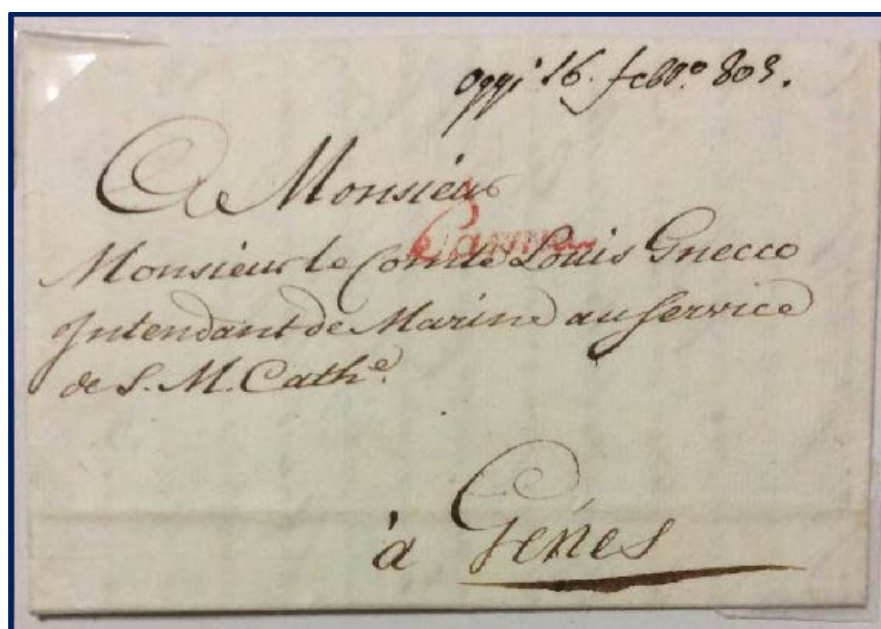 Oggi 16. febb.º 803.
A Monsieur
Parma
Monsieur le Comte Louis Gnecco
Intendant de Marine au Service
de S. M. Cath.e
à Gênes